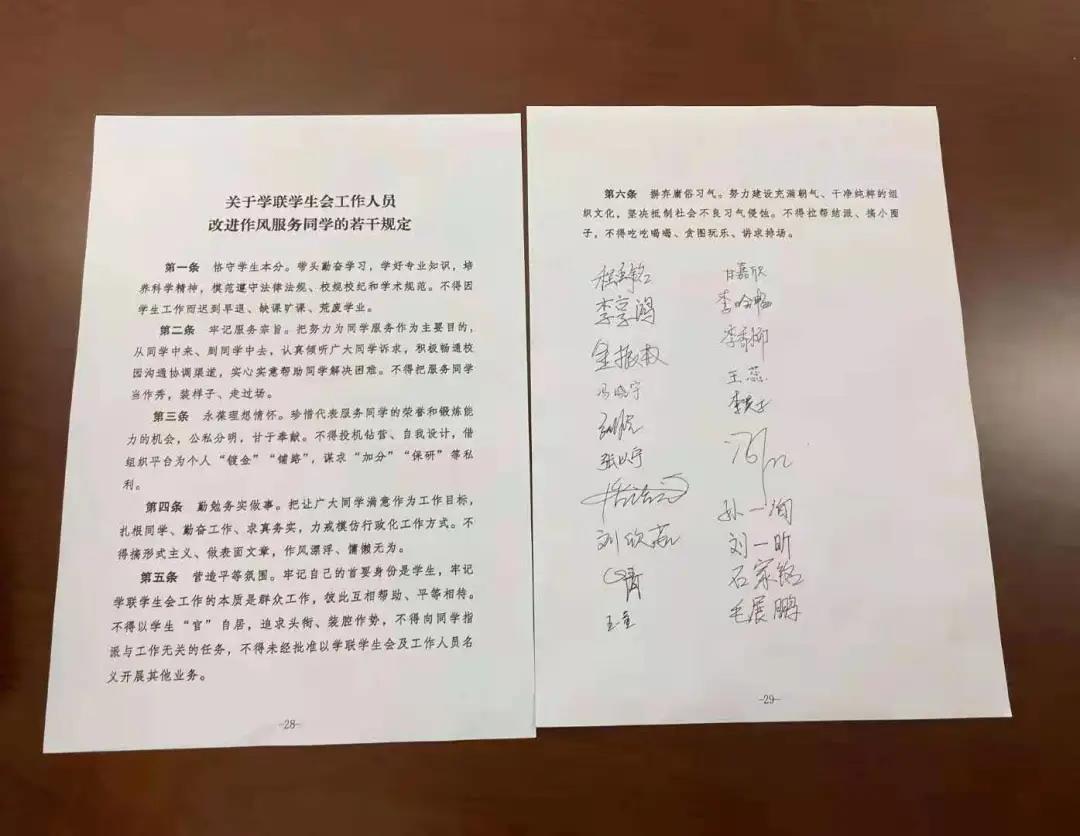 关于学联学生会工作人员
改进作风服务同学的若干规定
第一条 恪守学生本分。带头勤奋学习，学好专业知识，培
养科学精神，模范遵守法律法规、校规校纪和学术规范。不得因
学生工作而迟到早退、缺课旷课、荒废学业。
第二条 牢记服务宗旨。把努力为同学服务作为主要目的，
从同学中来、到同学中去，认真倾听广大同学诉求，积极畅通校
园沟通协调渠道，实心实意帮助同学解决困难。不得把服务同学
当作秀，装样子、走过场。
第三条 永葆理想情怀。珍惜代表服务同学的荣誉和锻炼能
力的机会，公私分明，甘于奉献。不得投机钻营、自我设计，借
组织平台为个人“镀金”“铺路”，谋求“加分”“保研”等私
利。
第四条 勤勉务实做事。把让广大同学满意作为工作目标，
扎根同学、勤奋工作、求真务实，力戒模仿行政化工作方式。不
得搞形式主义、做表面文章，作风漂浮、慵懒无为。
第五条 营造平等氛围。牢记自己的首要身份是学生，牢记
学联学生会工作的本质是群众工作，彼此互相帮助、平等相待。
不得以学生“官”自居，追求头衔、装腔作势，不得向同学指
派与工作无关的任务，不得未经批准以学联学生会及工作人员名
义开展其他业务。
-28-
第六条 摒弃庸俗习气。努力建设充满朝气、干净纯粹的组
织文化，坚决抵制社会不良习气侵蚀。不得拉帮结派、搞小圈
子，不得吃吃喝喝、贪图玩乐、讲求排场。
李享鸿
冯晓宇
张以宁
刘欣
王童
甘嘉欣
王蕊
孙一洵
刘一昕
石家铭
毛展鹏
-29-